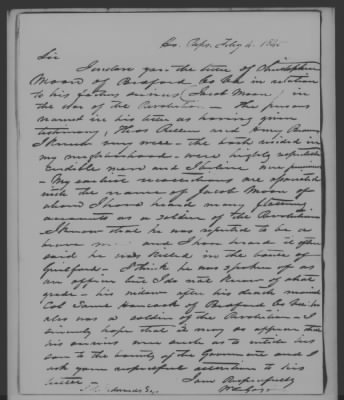 Ho. Reps. Feby 4. 184
Sir
I enclose you the letter of Christopher
Moon of Bedford Co Va in relation
to his fathers services (Jacob Moon) in
the War of the Revolution — The persons
named in his letter as having given
testimony, Thos Allen and Amy
I knew very well — they both resided in
my neighborhood — were highly respectable
Credible man and
— My earliest recollections are associated
with the name of Jacob Moon of
whom I have heard many flattering
accounts as a soldier of the Revolution
I know that he was reputed to be a
brave man and I have heard it often
said he was killed in the battle of
Guilford — I think he was spoken of as
an officer but I do not know of what
grade — his widow after his death married
Col. James Hancock of Bedford Co
also was a soldier of the Revolution — I
sincerely hope that it may so appear that
his services were such as to entitle his
son to the bounty of the Government and I
ask your respectful attention to his
letter
I am Respectfully
J. L. Edwards Esq.
Wm